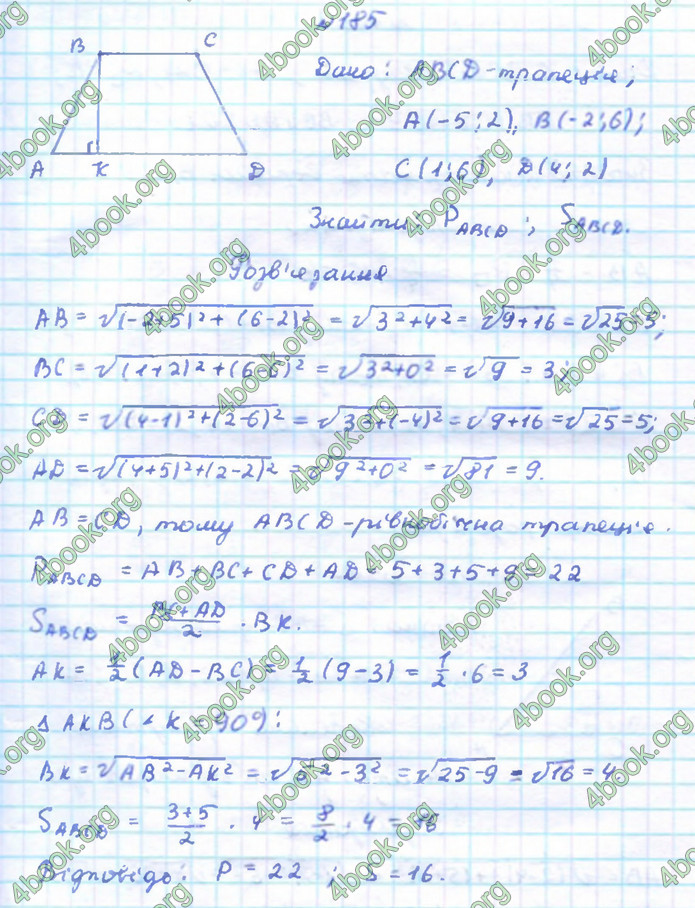 №185
B C
A K D
Дано: ABCD-трапеція;
A(-5;2), B(-2;6);
C(1;6), D(4;2)
Знайти: P_ABCD; S_ABCD.
Розв'язання
AB = √(-2+5)²+(6-2)² = √3²+4² = √9+16 = √25=5;
BC = √(1+2)²+(6-6)² = √3²+0² = √9 = 3;
CD = √(4-1)²+(2-6)² = √3²+(-4)² = √9+16 =√25=5;
AD = √(4+5)²+(2-2)² = √9²+0² = √81 = 9.
AB=CD, тому ABCD-рівнобічна трапеція.
P_ABCD = AB+BC+CD+AD = 5+3+5+9 = 22
S_ABCD = BC+AD/2 · BK.
AK = 1/2 (AD-BC) = 1/2 (9-3) = 1/2 ·6=3
Δ AKB (∠K=90°):
BK=√AB²-AK² = √5²-3² = √25-9 = √16 = 4.
S_ABCD = 3+5/2 · 4 = 8/2 · 4 = 16
Відповідь: P = 22; S=16.
4book.org